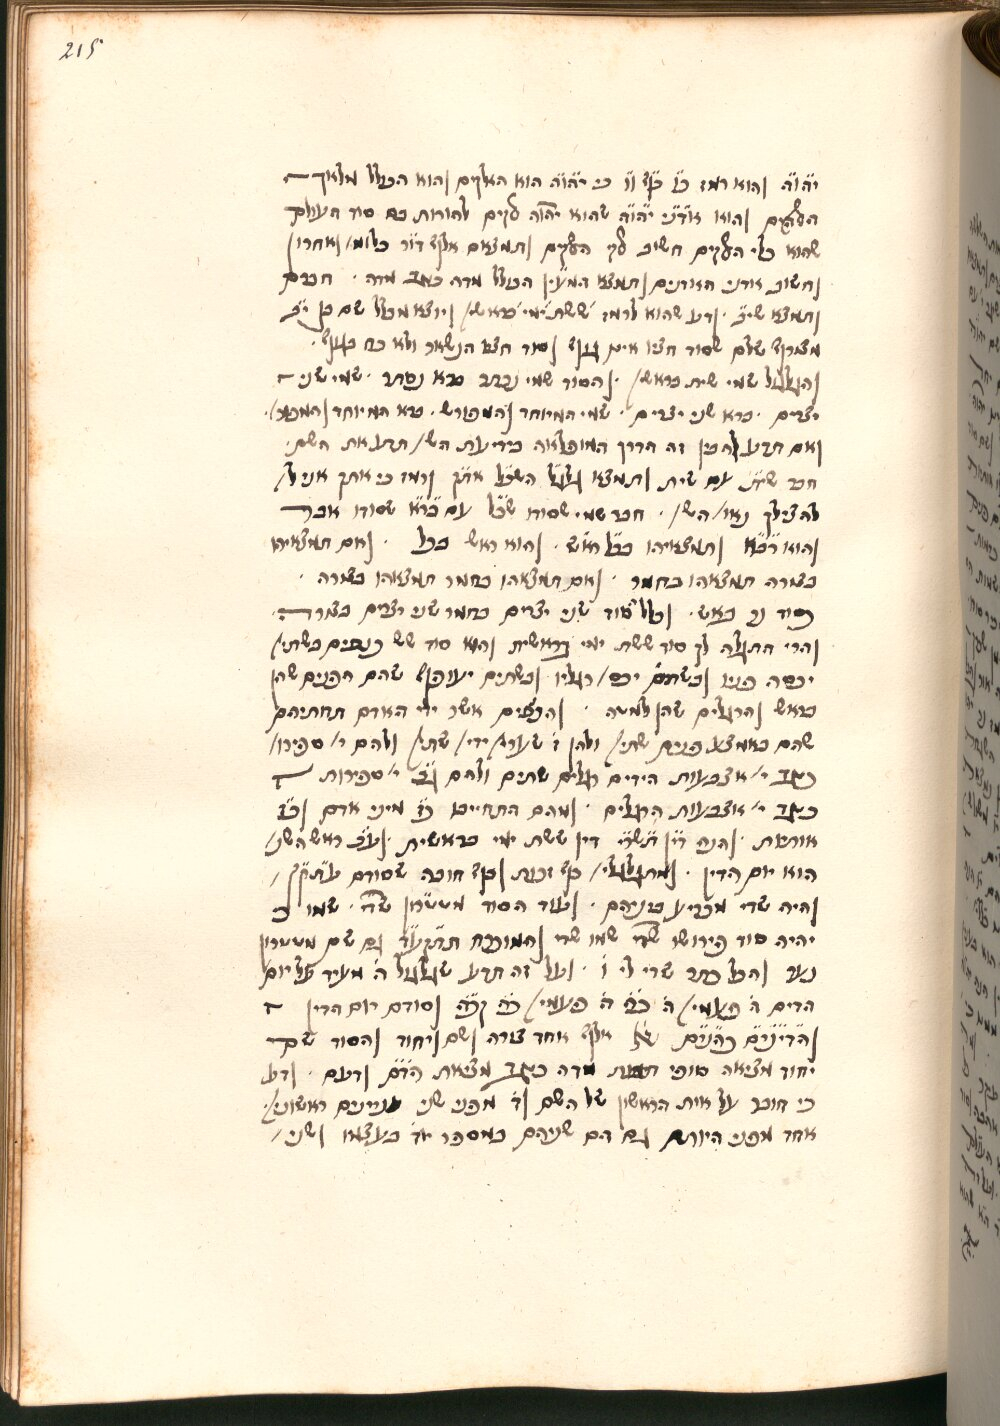 215
יהוה והוא רמז כי יהוה הוא האלקים והוא הכולל מלאך
והוא אדני יהוה שהוא יהוה אלקים להורות כח סוד העולם
שהוא כלי האלקים חשוב האלקים ותמצאם אלף דור כלומ' ואחרון
וחשוב אדני האדנים ותמצא המעין הכולל מדה כנגד מדה . חברם
ותמצא שי״ב . ודע שהוא לרמז ששת ימי בראשי' ויוצא מכלל שם בן י״ב
שלם שסוד חציו אינו וסוד חציו הנשאר ולא כח
והגלגל שמי שית בראש' . והסוד שמי נכתב ברא נסתר . שמי שני
יצרים . ברא שני יצרים . שמי המיוחד והמפורש . ברא המיוחד והמפור' .
ואם תדע להבין זה הדרך המופלאה בידיעת הש' תדע את השם .
חבר שי״ת עם שית ותמצא גלגל השכל אתך ורמז כי אתך אני ל'
להצילך נאו' הש' . חבר שמי שסודו שכל עם ברא שסודו אבר
והוא רבא ותמצאיהו בכל ראש . והוא ראש בכל . ואם תמצאיהו
בצורה תמצאהו בחמר . ואם תמצאהו בחמר תמצאהו בצורה .
כסוד גן באש . וכלל סוד שני יצרים בחמר שני יצרים בצורה
והרי התגלה לך סוד ששת ימי בראשית והוא סוד שש כנפים בשתי'
יכסה פניו ובשתים יכס' רגליו ובשתים יעופף שהם הפנים שהן
בראש והרגלים שהן למטה . והכנפים אשר ידי האדם תחתיהם
שהם באמצע פנים שתי' ולהן ז שערי' ידי' שתי' ולהם י' ספירו'
כנגד י' אצבעות הידים רגלים שתים ולהם ג״כ י' ספירות
כנגד י' אצבעות הרגלים . ומהם התחייבו כ״ז מיני אדם וכ״ז
אותיות . והנה דין תשרי דין ששת ימי בראשית . וע״כ ראש השנ'
הוא יום הדין . ומתגלגלי' כף זכות וכף חובה שסודם
והיה שדי מכריע בניהם . ועוד הסוד מטטרון שר . שמו כי
יהיה סוד פירושו שדי שמו שדי והמוכיח גם שם מטטרון
נער והכל כתב שדי לי ו . ועל זה תדע שגלגל ה מעיד על יום
הדים ה פעמי' ה כ״ה ה פעמי' כ״ה קכ״ה וסודם יום הדין
והדיינים כהנים אלף אחד צורה ושם ויחוד והסוד שם
יחוד מציאה סופי תמונת מדה כנגד מציאת הדם ודעם . ודע
כי חובר על אות הראשון של השם וד מפני שני עניינים ראשוני' .
אחד מפני היותם גם הם שניהם במספר יוד בעצמו ושני'